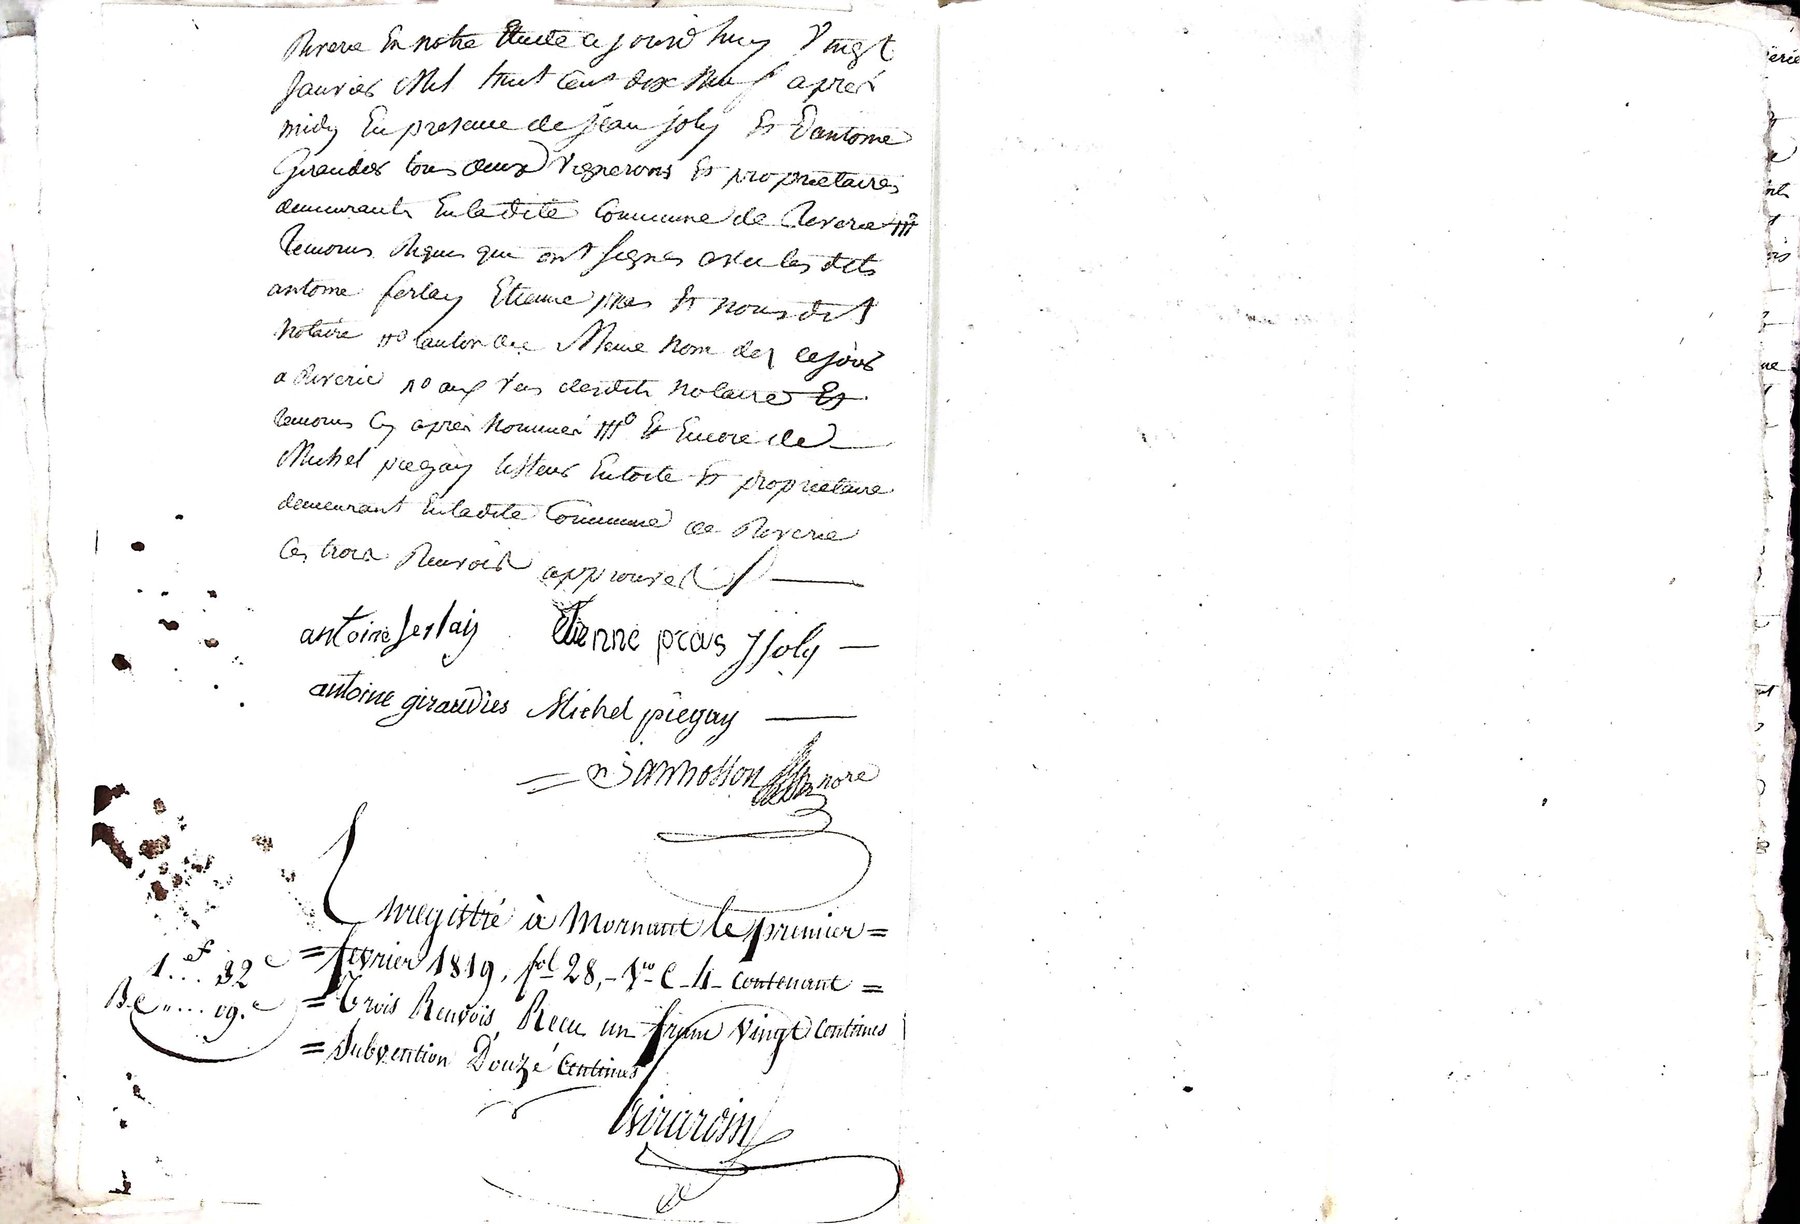 Riverie En notre Etude ajourd'huy Vingt
Janvier Mil huit Cent dix Neuf après
midy En presence de jean joly Et D'antoine
Giraudier tous deux Vignerons Et proprietaires
demeurants En ladite Commune de Riverie IIIo
Temoins Requis qui ont signés avec les dits
antoine ferlay Etienne pras Et nous dit
Notaire IIo Canton de Meme Nom de ce jour
a Riverie Io aux desdits Notaire Et
Temoins Cy après Nommés IIIo Et Encore de
Michel piegay tisseur En toile Et proprietaire
demeurant En ladite Commune de Riverie
Ces trois Renvois approuvés
antoine ferlay Etienne pras J Joly
antoine giraudier Michel piegay
nore
Enregistré à Mornant le premier =
= fevrier 1819, fol 28, - Vo - C - 4 - Contenant =
= Trois Renvois, Recu un franc Vingt Centimes
= Subvention Douze Centimes
1.f ... 32 c
.... 09. c
Girardin